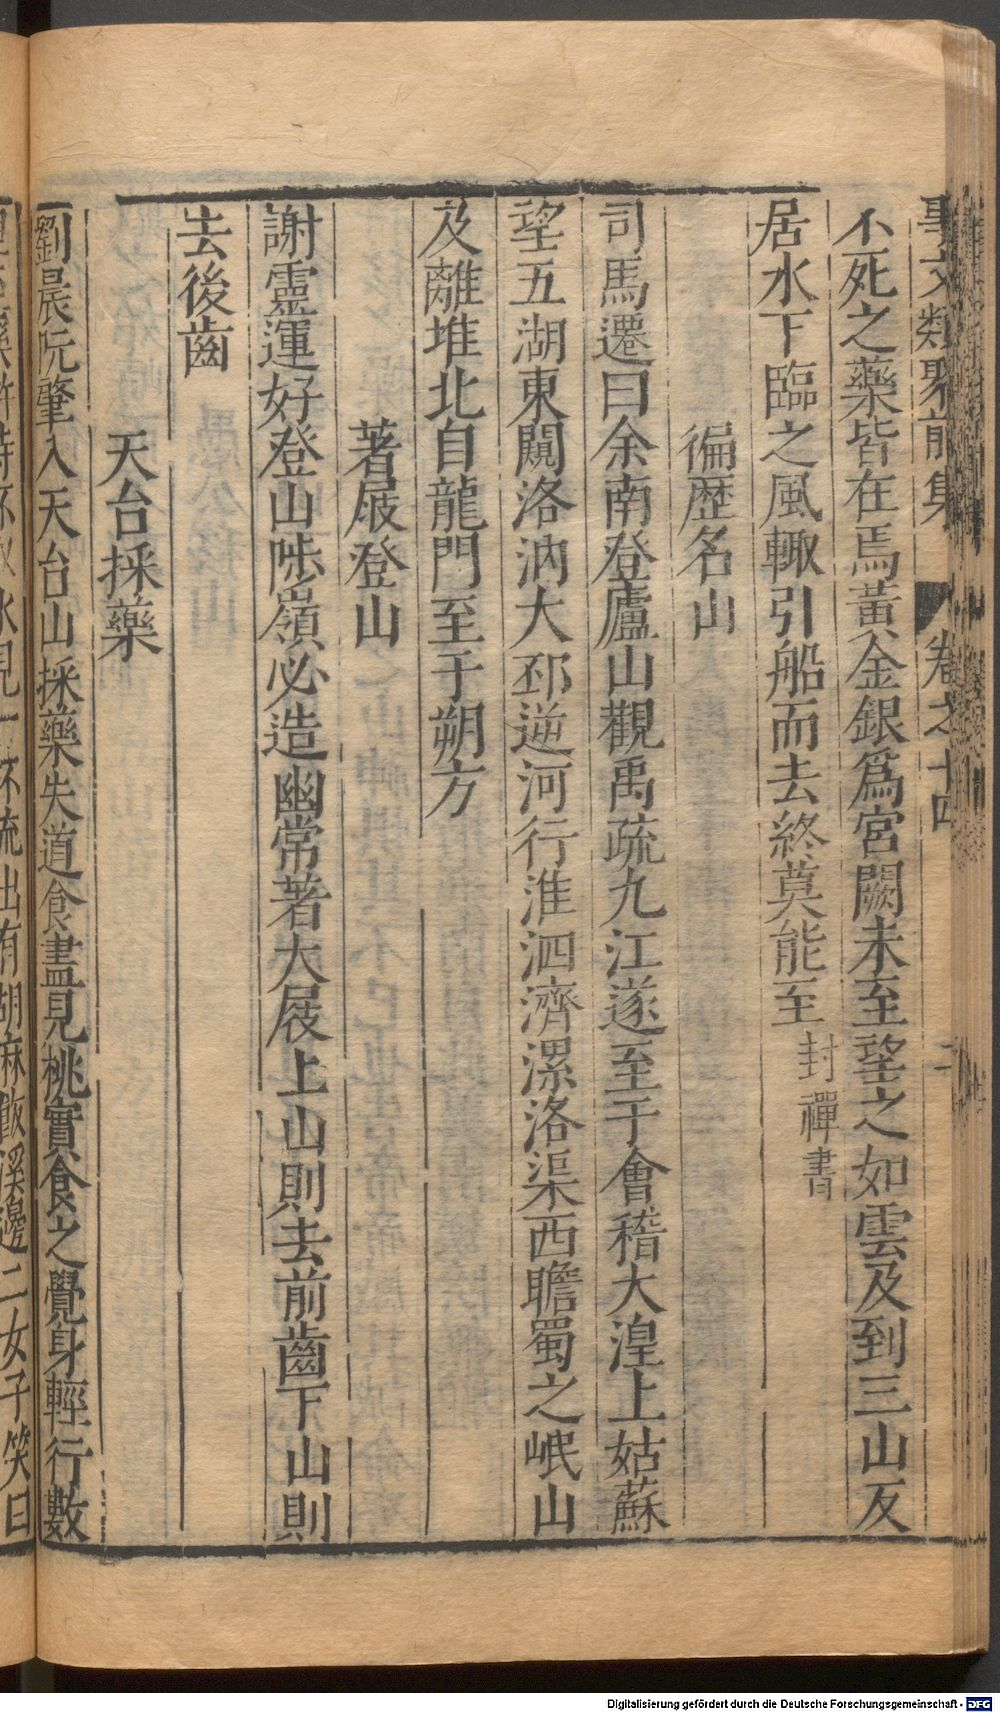 事文類聚前集 卷之十四 二
不死之藥皆在焉黃金銀爲宮闕未至望之如雲及到三山反
居水下臨之風輙引船而去終莫能至封禪書
徧歴名山
司馬遷曰余南登廬山觀禹疏九江遂至于會稽大湟上姑蘇
望五湖東闚洛汭大邳逆河行淮泗濟漯洛渠西瞻蜀之岷山
及離堆北自龍門至于朔方
著屐登山
謝靈運好登山陟嶺必造幽常著大屐上山則去前齒下山則
去後齒
天台採藥
劉晨阮肇入天台山採藥失道食盡見桃實食之覺身輕行數
水見一杯流出有胡麻飯溪邊二女子笑曰
Digitalisierung gefördert durch die Deutsche Forschungsgemeinschaft - DFG